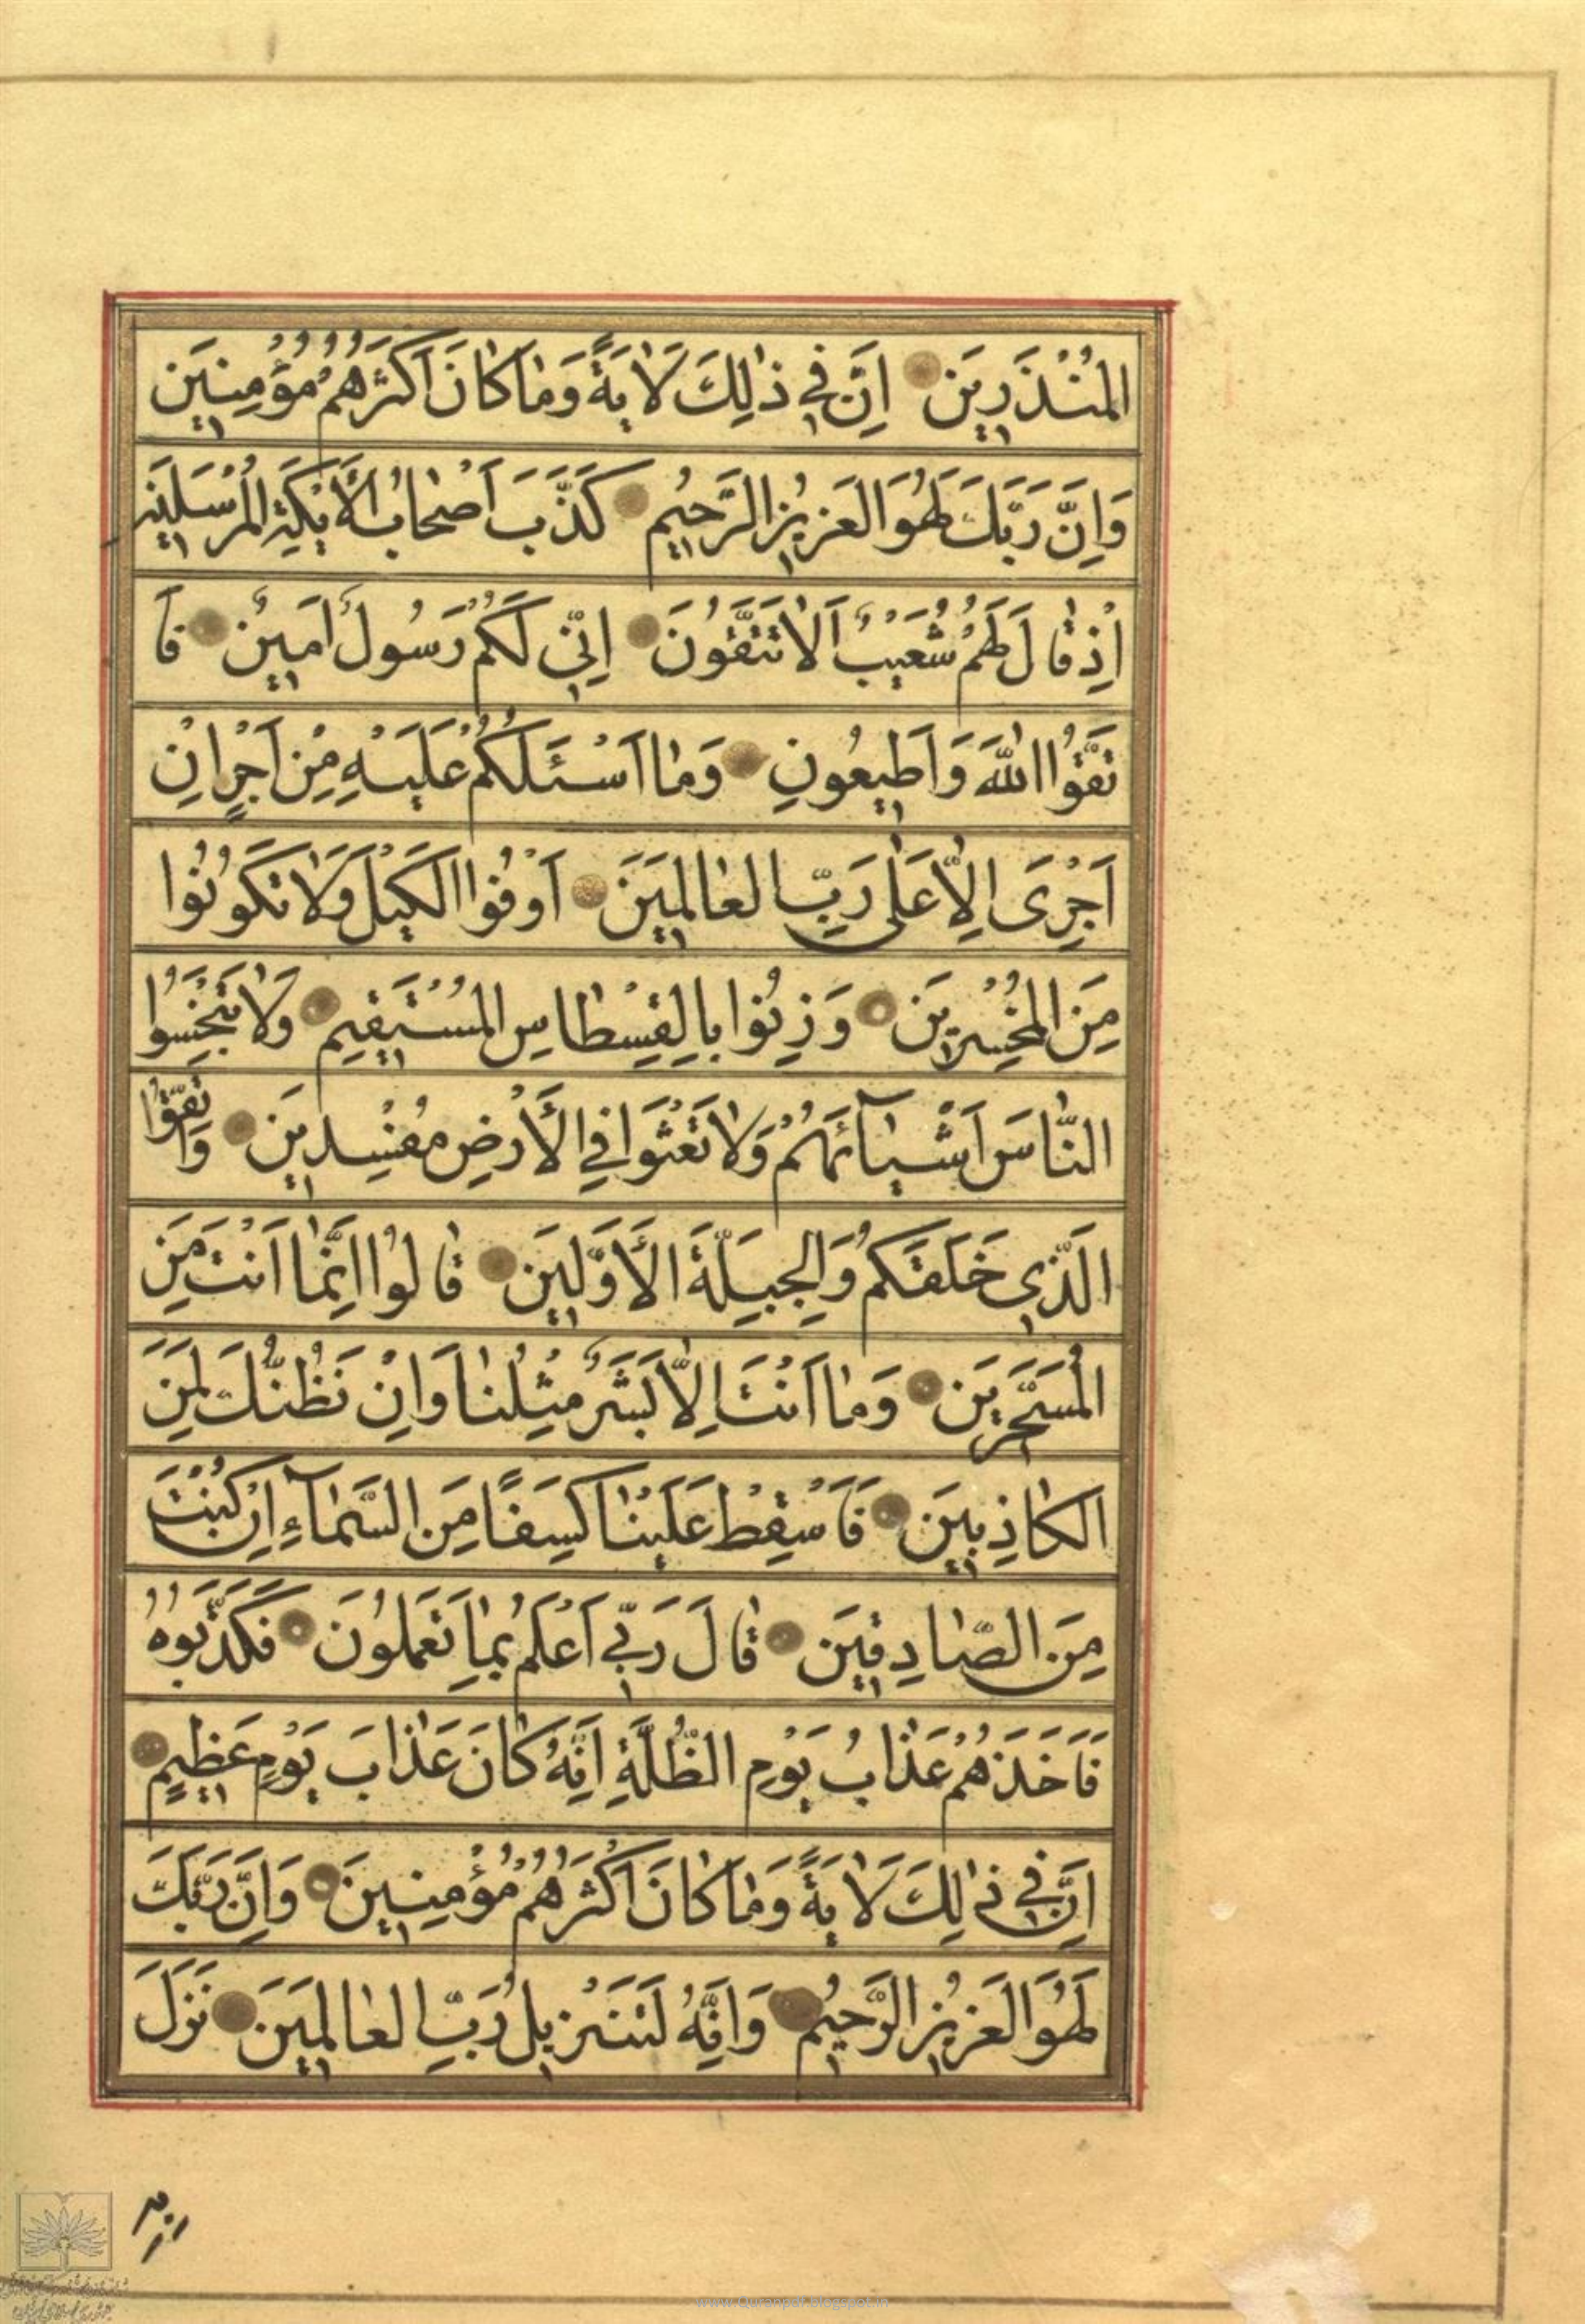 المُنْذَرِينَ اِنَّ فِي ذٰلِكَ لَاٰيَةً وَمٰا كٰانَ اَكْثَرُهُمْ مُؤْمِنِينَ
وَاِنَّ رَبَّكَ لَهُوَ العَزِيزُ الرَّحِيمُ كَذَّبَ اَصْحٰابُ الْاَيْكَةِ المُرْسَلِينَ
اِذْ قٰالَ لَهُمْ شُعَيْبٌ اَلٰا تَتَّقُونَ اِنِّي لَكُمْ رَسُولٌ اَمِينٌ فَا
تَّقُوا اللّٰهَ وَاَطِيعُونِ وَمٰا اَسْئَلُكُمْ عَلَيْهِ مِنْ اَجْرٍ اِنْ
اَجْرِىَ اِلّٰا عَلٰى رَبِّ العٰالَمِينَ اَوْفُوا الْكَيْلَ وَلٰا تَكُونُوا
مِنَ المُخْسِرِينَ وَزِنُوا بِالقِسْطٰاسِ المُسْتَقِيمِ وَلٰا تَبْخَسُوا
النّٰاسَ اَشْيٰآئَهُمْ وَلٰا تَعْثَوْا فِي الْاَرْضِ مُفْسِدِينَ وَاتَّقُوا
الَّذِي خَلَقَكُمْ وَالجِبِلَّةَ الْاَوَّلِينَ قٰالُوا اِنَّمٰا اَنْتَ مِنَ
المُسَحَّرِينَ وَمٰا اَنْتَ اِلّٰا بَشَرٌ مِثْلُنٰا وَاِنْ نَظُنُّكَ لَمِنَ
الكٰاذِبِينَ فَاَسْقِطْ عَلَيْنٰا كِسَفًا مِنَ السَّمٰآءِ اِنْ كُنْتَ
مِنَ الصّٰادِقِينَ قٰالَ رَبِّي اَعْلَمُ بِمٰا تَعْمَلُونَ فَكَذَّبُوهُ
فَاَخَذَهُمْ عَذٰابُ يَوْمِ الظُّلَّةِ اِنَّهُ كٰانَ عَذٰابَ يَوْمٍ عَظِيمٍ
اِنَّ فِي ذٰلِكَ لَاٰيَةً وَمٰا كٰانَ اَكْثَرُهُمْ مُؤْمِنِينَ وَاِنَّ رَبَّكَ
لَهُوَ العَزِيزُ الرَّحِيمُ وَاِنَّهُ لَتَنْزِيلُ رَبِّ العٰالَمِينَ نَزَلَ
www.Quranpdf.blogspot.in